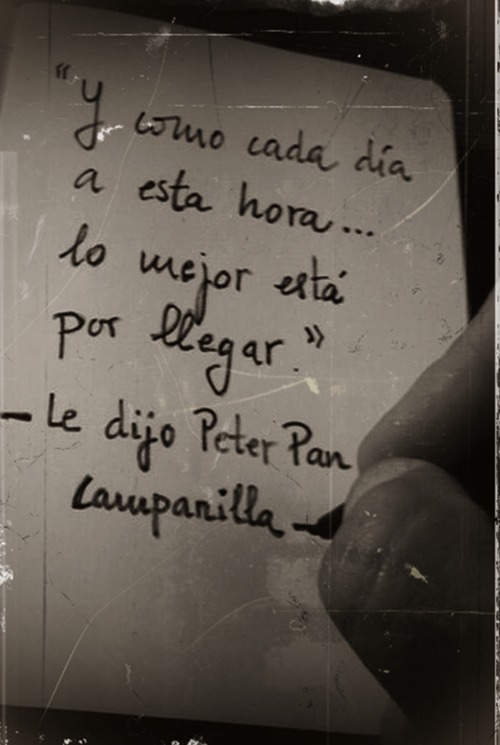 "Y como cada día
a esta hora...
lo mejor está
por llegar."
- Le dijo Peter Pan
Campanilla -